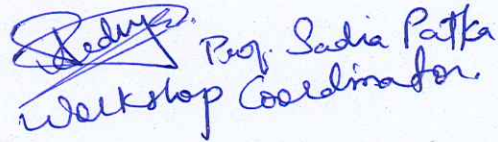 Prof. Sadia Patka
Workshop Coordinator.